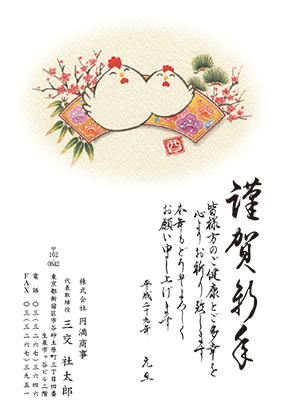 謹賀新年
皆様方のご健康とご多幸を
心よりお祈り致します
本年もどうぞよろしく
お願い申し上げます
平成二十九年 元旦
酉
株式会社 円満商事
代表取締役 三交社太郎
〒162-0842
東京都新宿区市谷砂土原町三丁目四番
生泉市ヶ谷ビル二階
電話 〇三(三二六七)三六四六
FAX 〇三(三二六七)三九五一